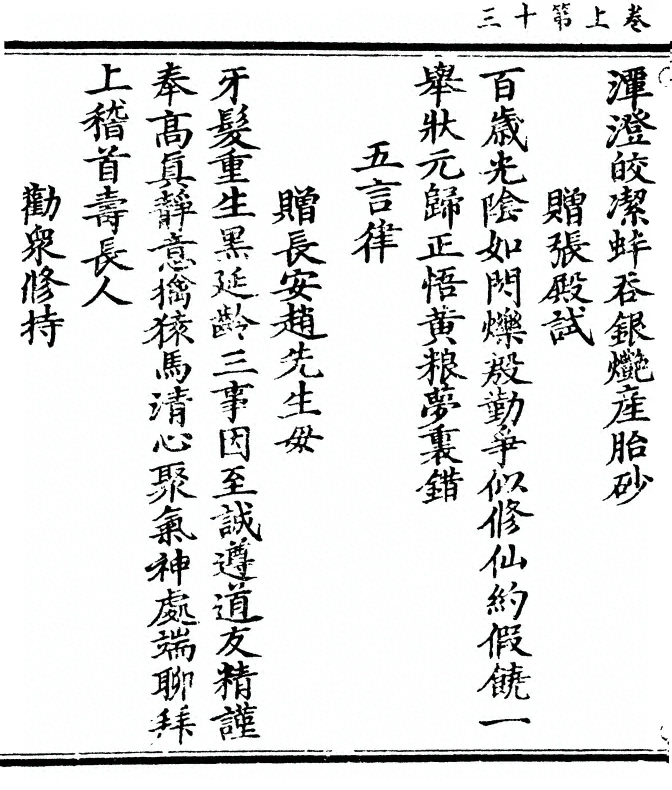 卷上第十三
潭澄皎潔蚌吞銀艷產胎砂
贈張殿試
百歲光陰如閃爍殷勤爭似修仙約假饒一
舉狀元歸正悟黄粮夢裏錯
五言律
贈長安趙先生毋
牙髮重生黑延齡三事因至誠遵道友精謹
奉高真靜意擒猿馬清心聚氣神處端聊拜
上稽首壽長人
勸衆修持